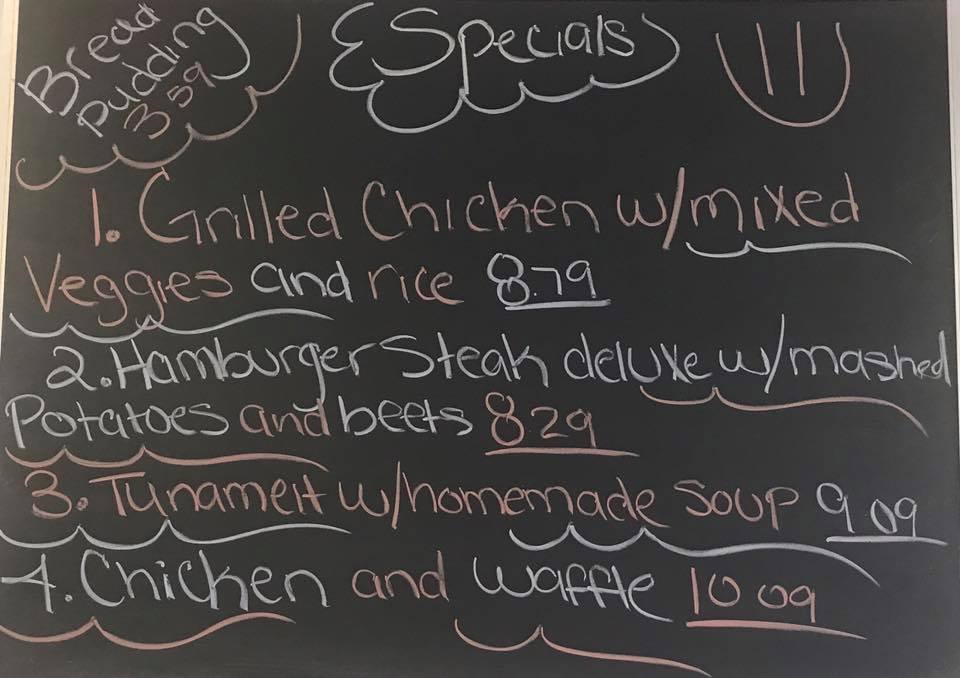 Bread
Pudding
3 59
Specials
1. Grilled Chicken w/mixed
Veggies and rice 8.79
2. Hamburger Steak deluxe w/mashed
Potatoes and beets 8 29
3. Tunamelt w/homemade Soup 9 09
4. Chicken and waffle 10 09